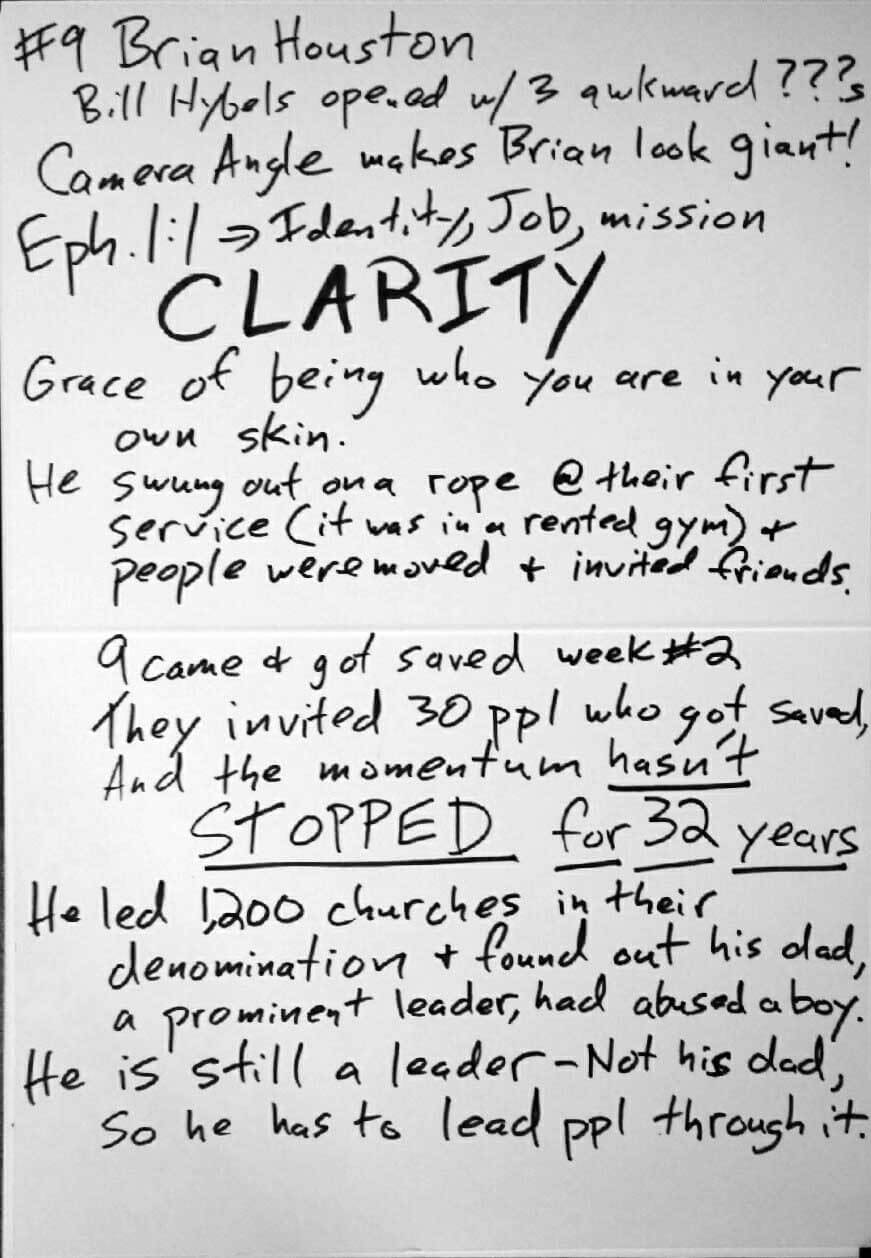 #9 Brian Houston
Bill Hybels opened w/ 3 awkward ???s
Camera Angle makes Brian look giant!
Eph. 1:1 ⇒ Identity, Job, mission
CLARITY
Grace of being who you are in your
own skin.
He swung out on a rope @ their first
service (it was in a rented gym) +
people were moved + invited friends.
9 came & got saved week #2
They invited 30 ppl who got saved,
And the momentum hasn't
STOPPED for 32 years
He led 1,200 churches in their
denomination + found out his dad,
a prominent leader, had abused a boy.
He is still a leader - Not his dad,
So he has to lead ppl through it.